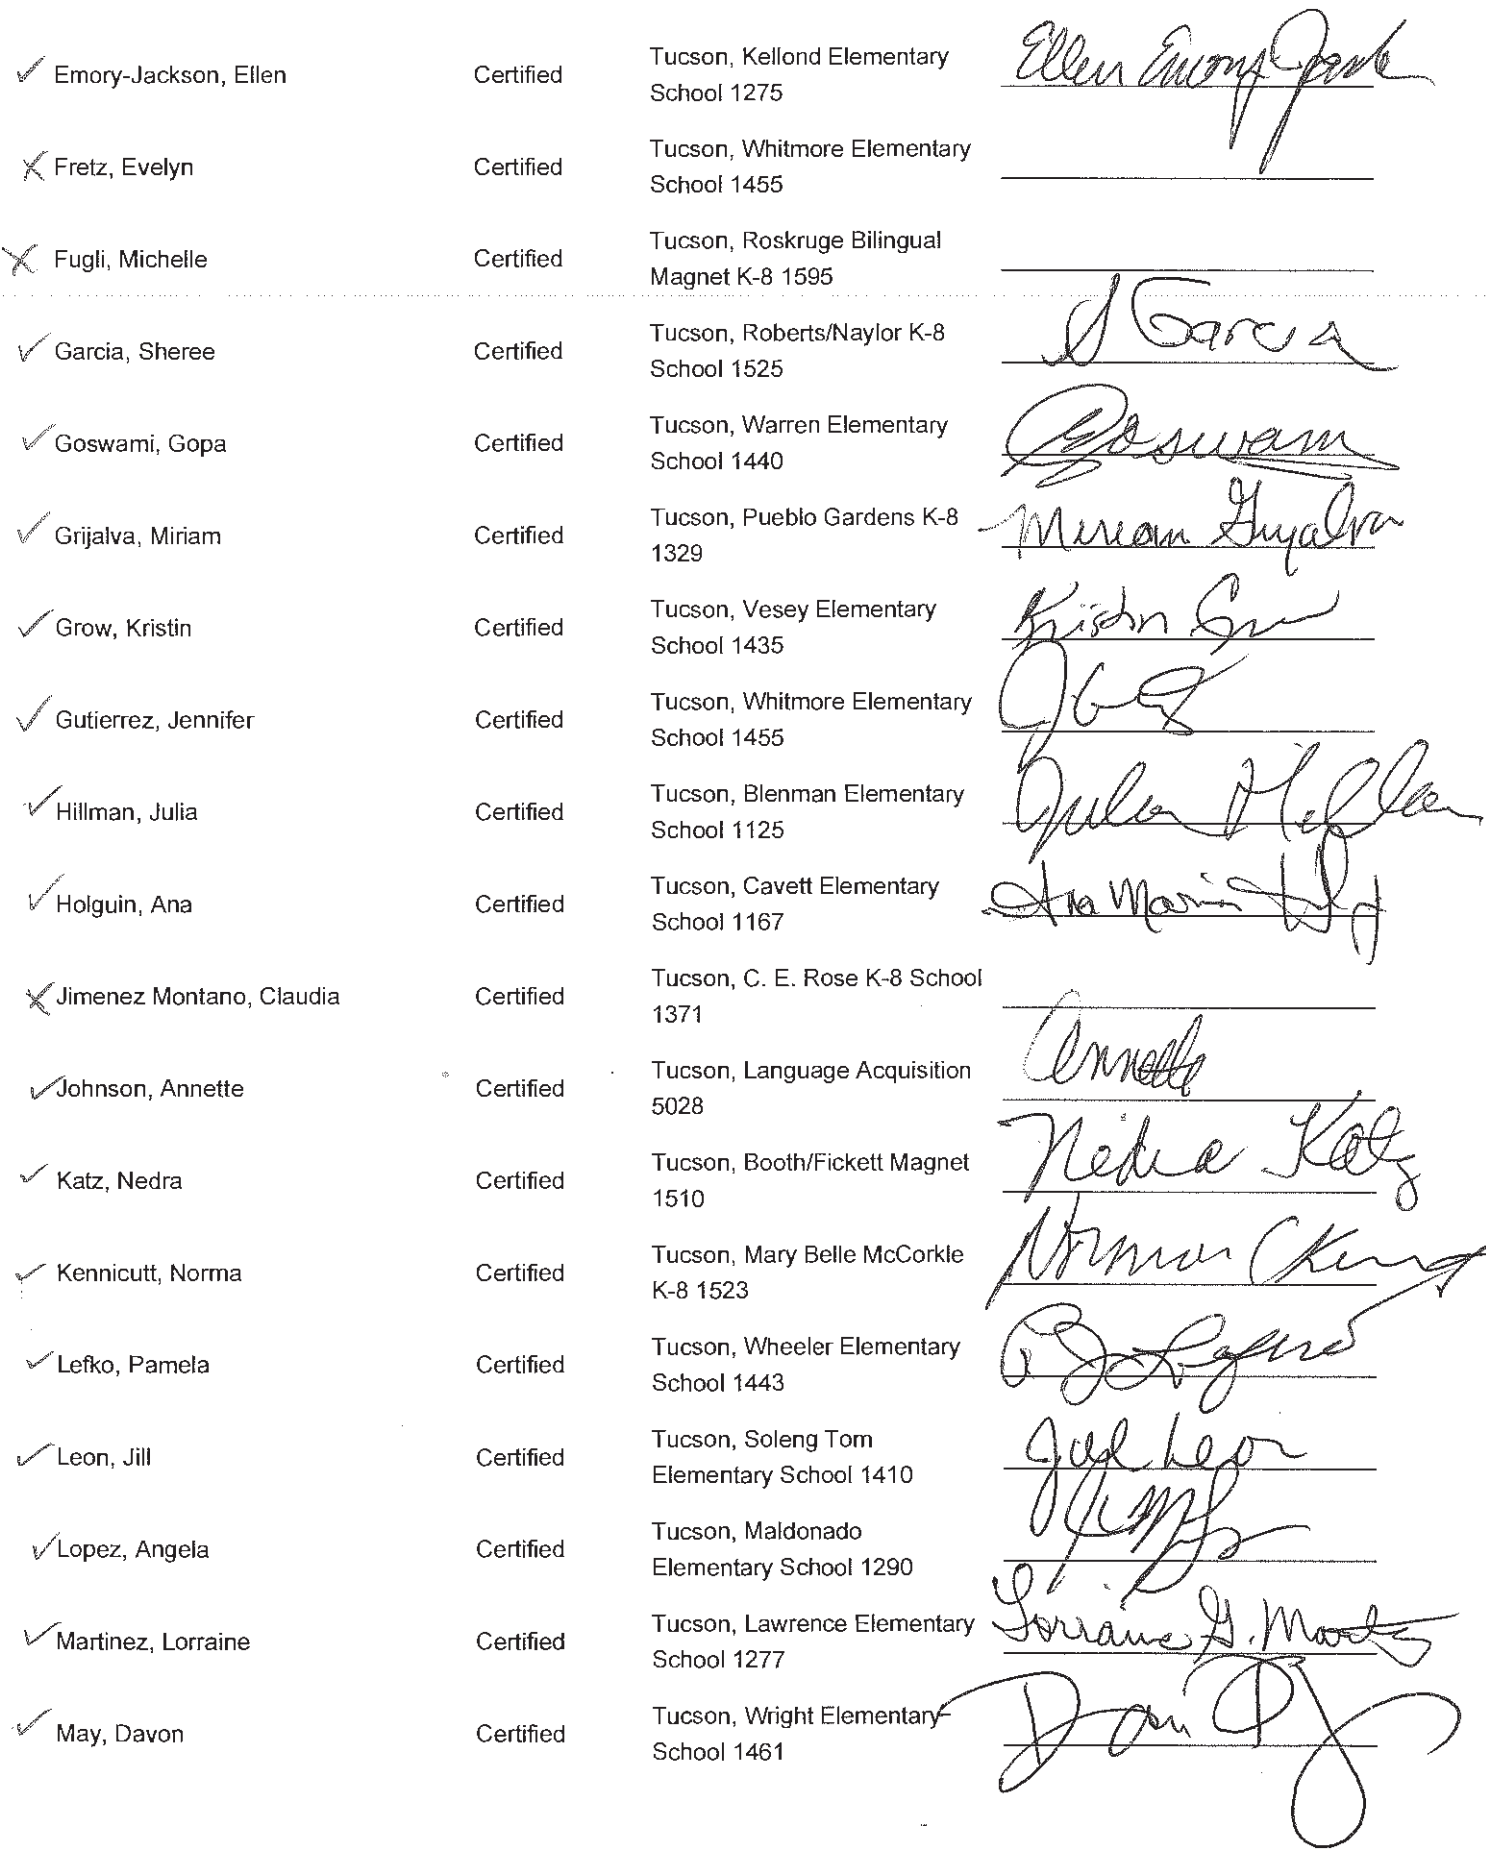 Emory-Jackson, Ellen Certified Tucson, Kellond Elementary Ellen Emory Jack
School 1275
Fretz, Evelyn Certified Tucson, Whitmore Elementary
School 1455
Fugli, Michelle Certified Tucson, Roskruge Bilingual
Magnet K-8 1595
Garcia, Sheree Certified Tucson, Roberts/Naylor K-8 S Garcia
School 1525
Goswami, Gopa Certified Tucson, Warren Elementary Goswami
School 1440
Grijalva, Miriam Certified Tucson, Pueblo Gardens K-8 Miriam Grijalva
1329
Grow, Kristin Certified Tucson, Vesey Elementary Kristin Grow
School 1435
Gutierrez, Jennifer Certified Tucson, Whitmore Elementary
School 1455
Hillman, Julia Certified Tucson, Blenman Elementary Julia Hillman
School 1125
Holguin, Ana Certified Tucson, Cavett Elementary Ana Maria
School 1167
Jimenez Montano, Claudia Certified Tucson, C. E. Rose K-8 School
1371
Johnson, Annette Certified Tucson, Language Acquisition Annette
5028
Katz, Nedra Certified Tucson, Booth/Fickett Magnet Nedra Katz
1510
Kennicutt, Norma Certified Tucson, Mary Belle McCorkle Norma
K-8 1523
Lefko, Pamela Certified Tucson, Wheeler Elementary
School 1443
Leon, Jill Certified Tucson, Soleng Tom Jill Leon
Elementary School 1410
Lopez, Angela Certified Tucson, Maldonado
Elementary School 1290
Martinez, Lorraine Certified Tucson, Lawrence Elementary Lorraine G.
School 1277
May, Davon Certified Tucson, Wright Elementary
School 1461